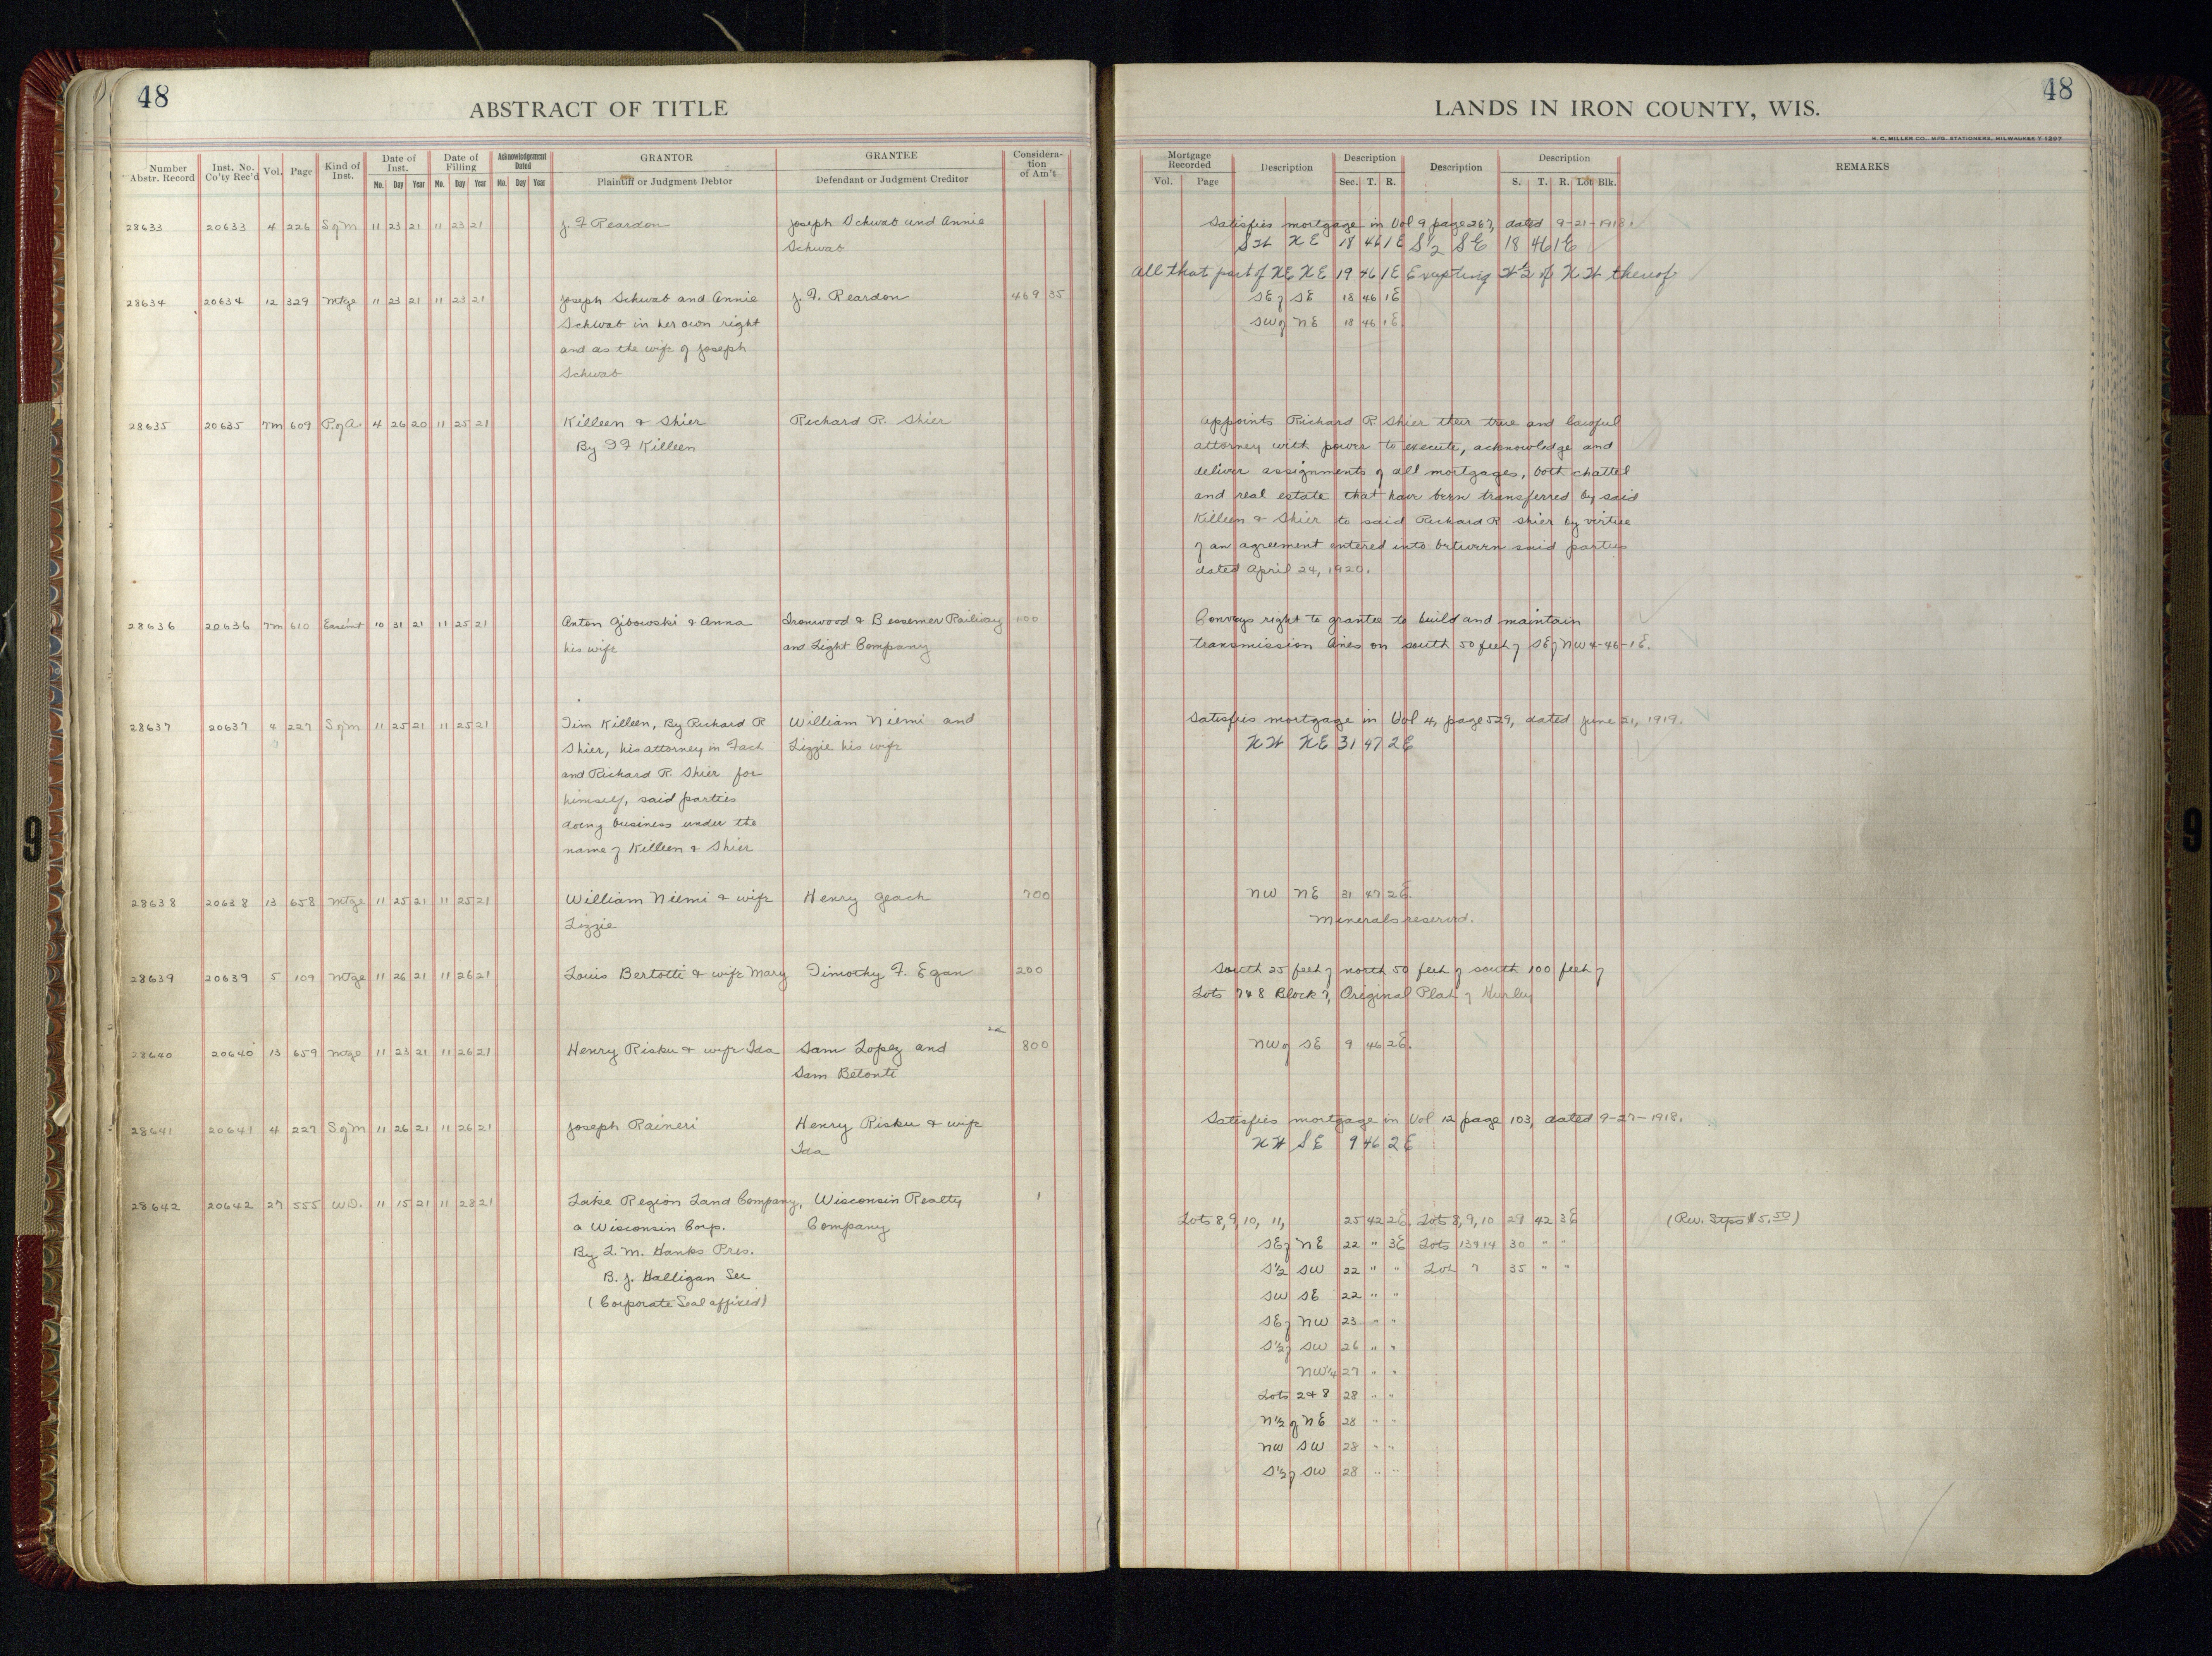 48
ABSTRACT OF TITLE
Number Abstr. Record Inst. No. Co'ty Rec'd Vol. Page Kind of Inst. Date of Inst. Mo. Day Year Date of Filing Mo. Day Year Acknowledgement Dated Mo. Day Year GRANTOR Plaintiff or Judgment Debtor GRANTEE Defendant or Judgment Creditor Considera-tion of Am't
28633 20633 4 226 S of M 11 23 21 11 23 21 J. F Reardon Joseph Schwab and Annie
Schwab
28634 20634 12 329 Mtge 11 23 21 11 23 21 Joseph Schwab and Annie J. F. Reardon 469 35
Schwab in her own right
and as the wife of Joseph
Schwab
28635 20635 7m 609 P. of A. 4 26 20 11 25 21 Killeen & Shier Richard R. Shier
By T F Killeen
28636 20636 7m 610 Easem't 10 31 21 11 25 21 Anton Gibowski & Anna Ironwood & Bessemer Railway 100
his wife and Light Company
28637 20637 4 227 S of M 11 25 21 11 25 21 Tim Killeen, By Richard R William Niemi and
Shier, his attorney in Fact Lizzie his wife
and Richard R. Shier for
himself, said parties
doing business under the
name of Killeen & Shier
28638 20638 13 658 Mtge 11 25 21 11 25 21 William Niemi & wife Henry Geach 700
Lizzie
28639 20639 5 109 Mtge 11 26 21 11 26 21 Louis Bertotti & wife Mary Timothy F. Egan 200
28640 20640 13 659 Mtge 11 23 21 11 26 21 Henry Risku & wife Ida Sam Lopez and 800
Sam Betonte
28641 20641 4 227 S of M 11 26 21 11 26 21 Joseph Raineri Henry Risku & wife
Ida
28642 20642 27 555 W.D. 11 15 21 11 28 21 Lake Region Land Company, Wisconsin Realty 1
a Wisconsin Corp. Company
By L. M. Hanks Pres.
B. J. Halligan Sec
(Corporate Seal affixed)
48
LANDS IN IRON COUNTY, WIS.
H. C. MILLER CO., MFG. STATIONERS, MILWAUKEE Y 1297
Mortgage Recorded Vol. Page Description Description Sec. T. R. Description Description S. T. R. Lot Blk. REMARKS
Satisfies mortgage in Vol 9 page 267, dated 9-21-1918.
SW NE 18 46 1E S 1/2 SE 18 46 1E
All that part of NE NE 19 46 1E Excepting W 1/2 of NW thereof
SE of SE 18 46 1E
SW of NE 18 46 1E.
Appoints Richard R Shier their true and lawful
attorney with power to execute, acknowledge and
deliver assignments of all mortgages, both chattel
and real estate that have been transferred by said
Killeen & Shier to said Richard R Shier by virtue
of an agreement entered into between said parties
dated April 24, 1920.
Conveys right to grantee to build and maintain
transmission lines on south 50 feet of SE of NW 4-46-1E.
Satisfies mortgage in Vol 4, page 529, dated June 21, 1919.
NW NE 31 47 2E
NW NE 31 47 2E.
Minerals reserved.
South 25 feet of north 50 feet of south 100 feet of
Lots 7 & 8 Block 7, Original Plat of Hurley
NW of SE 9 46 2E.
Satisfies mortgage in Vol 12 page 103, dated 9-27-1918.
NW SE 9 46 2E
Lots 8, 9, 10, 11, 25 42 2E. Lots 8, 9, 10 29 42 3E (Rev. Stps $5.50)
SE of NE 22 " 3E Lots 13 & 14 30 " "
S 1/2 SW 22 " " Lot 7 35 " "
SW SE 22 " "
SE of NW 23 " "
S 1/2 of SW 26 " "
NW 1/4 27 " "
Lots 2 & 8 28 " "
N 1/2 of NE 28 " "
NW SW 28 " "
S 1/2 of SW 28 " "
9
9